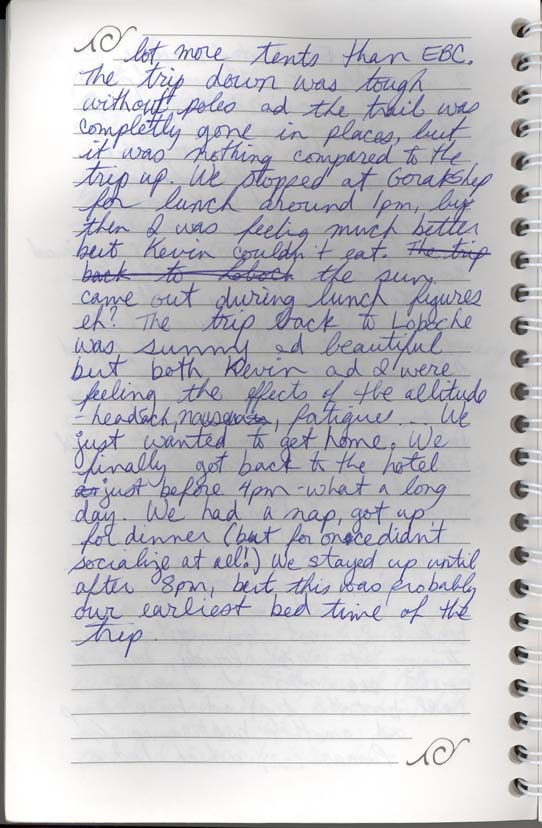 lot more tents than EBC.
The trip down was tough
without poles ad the trail was
completly gone in places, but
it was nothing compared to the
trip up. We stopped at Gorakshep
for lunch around 1pm, by
then I was feelig much better
but Kevin couldn't eat. The trip
back to Loboch the sun
came out during lunch figures
eh? The trip back to Loboche
was sunny ad beautiful
but both Kevin ad I were
feeling the effects of the altitude
- headach, nausea, fatigue... We
just wanted to get home. We
finally got back to the hotel
just before 4pm - what a long
day. We had a nap, got up
for dinner (but for once didn't
socialize at all!) We stayed up until
after 8pm, but this was probably
our earliest bed time of the
trip.